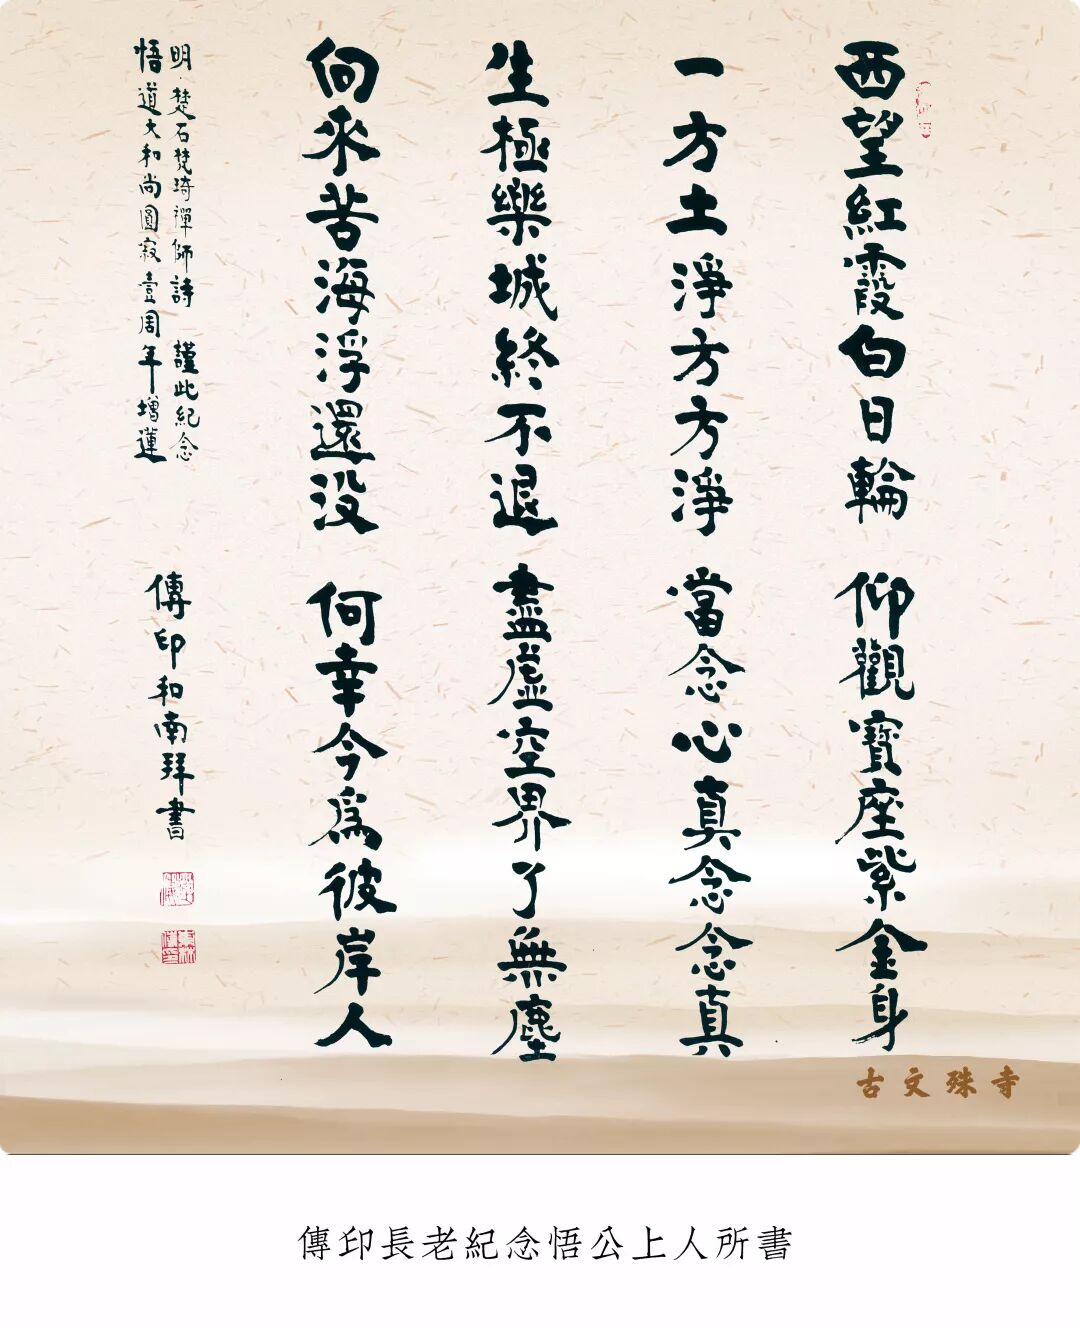 西望紅霞白日輪 仰觀寶座紫金身
一方土淨方方淨 當念心真念念真
生極樂城終不退 盡虛空界了無塵
向來苦海浮還没 何幸今為彼岸人
明 楚石梵琦禪師詩 謹此紀念
悟道大和尚圓寂壹周年增蓮
傳印和南拜書
古文殊寺
傳印長老紀念悟公上人所書